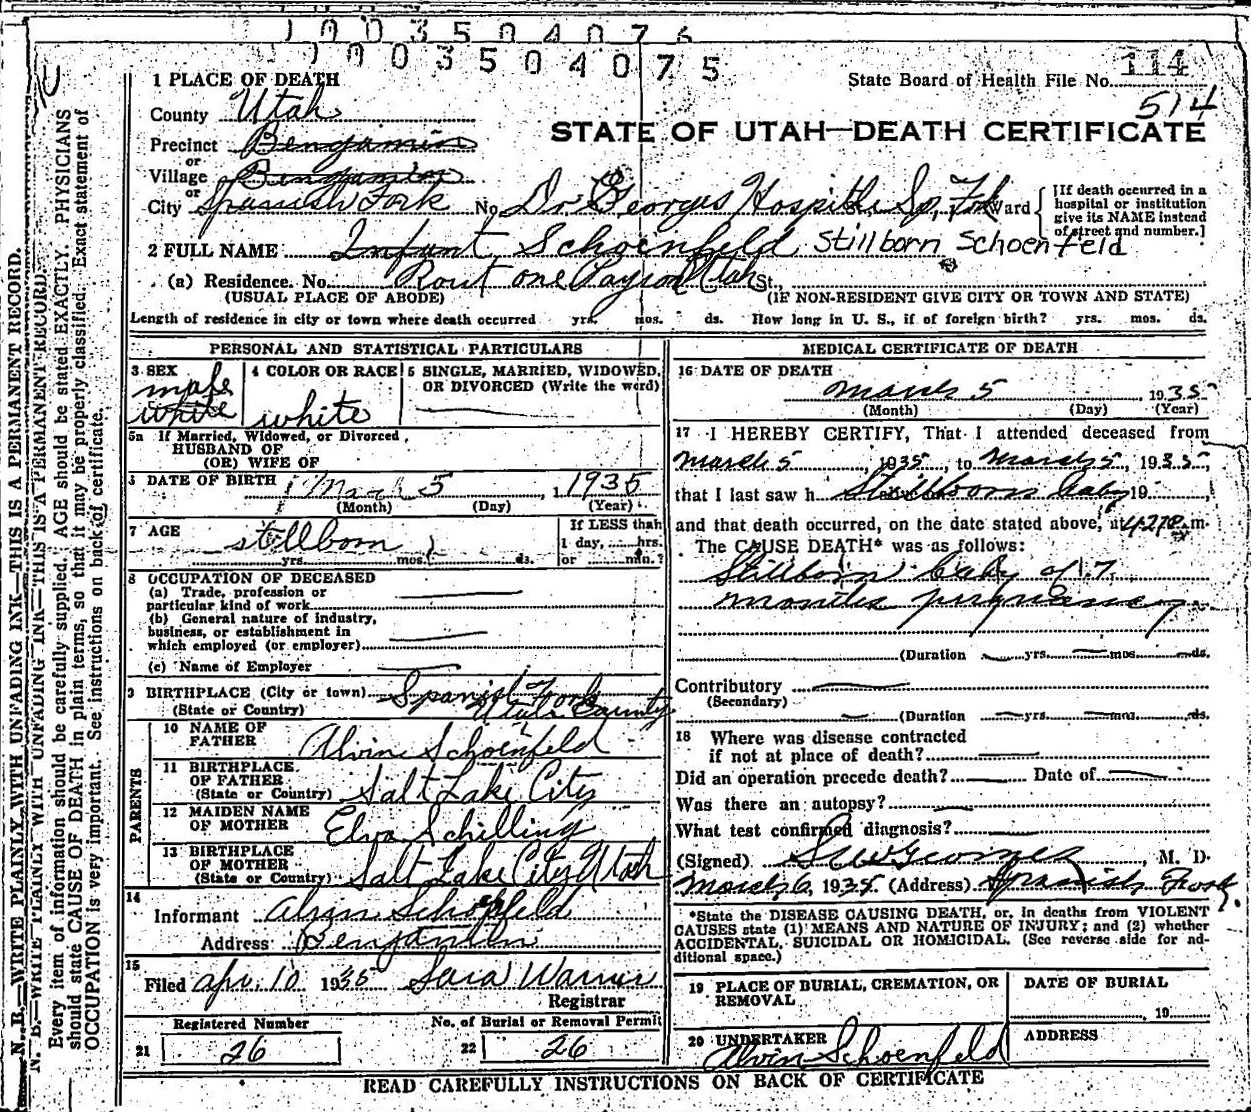 1003504076
1003504075
1 PLACE OF DEATH
State Board of Health File No. 114
514
County Utah
STATE OF UTAH—DEATH CERTIFICATE
Precinct Benjamin
or
Village Benjamin
or
City Spanish Fork No Dr Georges Hospital Sp. Fork Ward
[If death occurred in a hospital or institution give its NAME instead of street and number.]
2 FULL NAME Infant Schoenfeld Stillborn Schoenfeld
(a) Residence. No. Rout one Payson Utah St.
(USUAL PLACE OF ABODE) (IF NON-RESIDENT GIVE CITY OR TOWN AND STATE)
Length of residence in city or town where death occurred yrs. mos. ds. How long in U. S., if of foreign birth? yrs. mos. ds.
PERSONAL AND STATISTICAL PARTICULARS
3 SEX male white
4 COLOR OR RACE white
5 SINGLE, MARRIED, WIDOWED, OR DIVORCED (Write the word)
5a If Married, Widowed, or Divorced
HUSBAND OF
(OR) WIFE OF
DATE OF BIRTH March 5 1935
(Month) (Day) (Year)
7 AGE stillborn
yrs. mos. ds.
If LESS than
1 day, hrs.
or min.?
8 OCCUPATION OF DECEASED
(a) Trade, profession or
particular kind of work
(b) General nature of industry,
business, or establishment in
which employed (or employer)
(c) Name of Employer
9 BIRTHPLACE (City or town) Spanish Fork
(State or Country) Utah County
PARENTS
10 NAME OF FATHER Alvin Schoenfeld
11 BIRTHPLACE OF FATHER (State or Country) Salt Lake City
12 MAIDEN NAME OF MOTHER Elva Schilling
13 BIRTHPLACE OF MOTHER (State or Country) Salt Lake City Utah
14
Informant Alvin Schoenfeld
Address Benjamin
15
Filed Apr. 10 1935 Sara Warner
Registrar
Registered Number
21 26
No. of Burial or Removal Permit
22 26
MEDICAL CERTIFICATE OF DEATH
16 DATE OF DEATH
March 5, 1935
(Month) (Day) (Year)
17 I HEREBY CERTIFY, That I attended deceased from
March 5, 1935, to March 5, 1935,
that I last saw h Stillborn baby 19
and that death occurred, on the date stated above, at m.
The CAUSE DEATH* was as follows:
Stillborn baby of 7
months pregnancy
(Duration yrs. mos. ds.
Contributory
(Secondary)
(Duration yrs. mos. ds.
18 Where was disease contracted
if not at place of death?
Did an operation precede death? Date of
Was there an autopsy?
What test confirmed diagnosis?
(Signed) Georges, M. D.
March 6, 1935 (Address) Spanish Fork
*State the DISEASE CAUSING DEATH, or, in deaths from VIOLENT
CAUSES state (1) MEANS AND NATURE OF INJURY; and (2) whether
ACCIDENTAL, SUICIDAL OR HOMICIDAL. (See reverse side for ad-
ditional space.)
19 PLACE OF BURIAL, CREMATION, OR REMOVAL
DATE OF BURIAL
, 19
20 UNDERTAKER
Alvin Schoenfeld
ADDRESS
READ CAREFULLY INSTRUCTIONS ON BACK OF CERTIFICATE
N. B.—WRITE PLAINLY WITH UNFADING INK—THIS IS A PERMANENT RECORD.
N. B.—WRITE PLAINLY WITH UNFADING INK—THIS IS A PERMANENT RECORD.
Every item of information should be carefully supplied. AGE should be stated EXACTLY. PHYSICIANS
should state CAUSE OF DEATH in plain terms, so that it may be properly classified. Exact statement of
OCCUPATION is very important. See instructions on back of certificate.